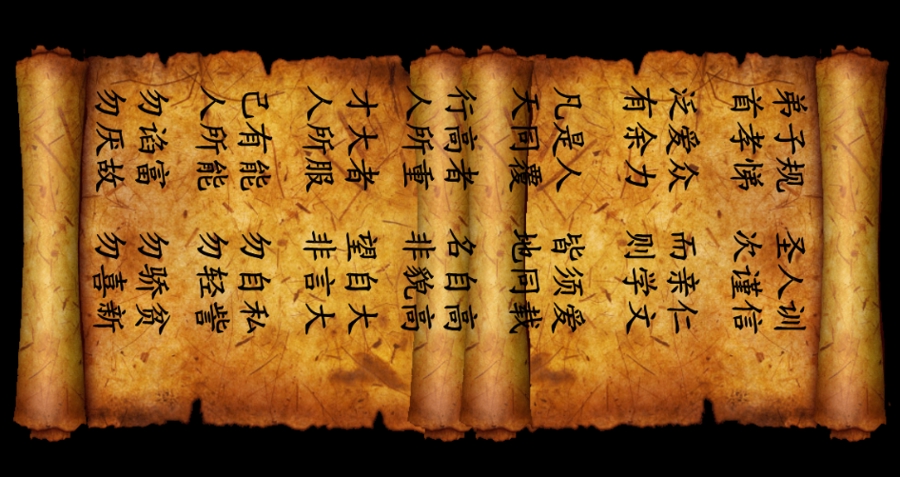 弟子规 圣人训
首孝悌 次谨信
泛爱众 而亲仁
有余力 则学文
凡是人 皆须爱
天同覆 地同载
行高者 名自高
人所重 非貌高
才大者 望自大
人所服 非言大
己有能 勿自私
人所能 勿轻訾
勿谄富 勿骄贫
勿厌故 勿喜新